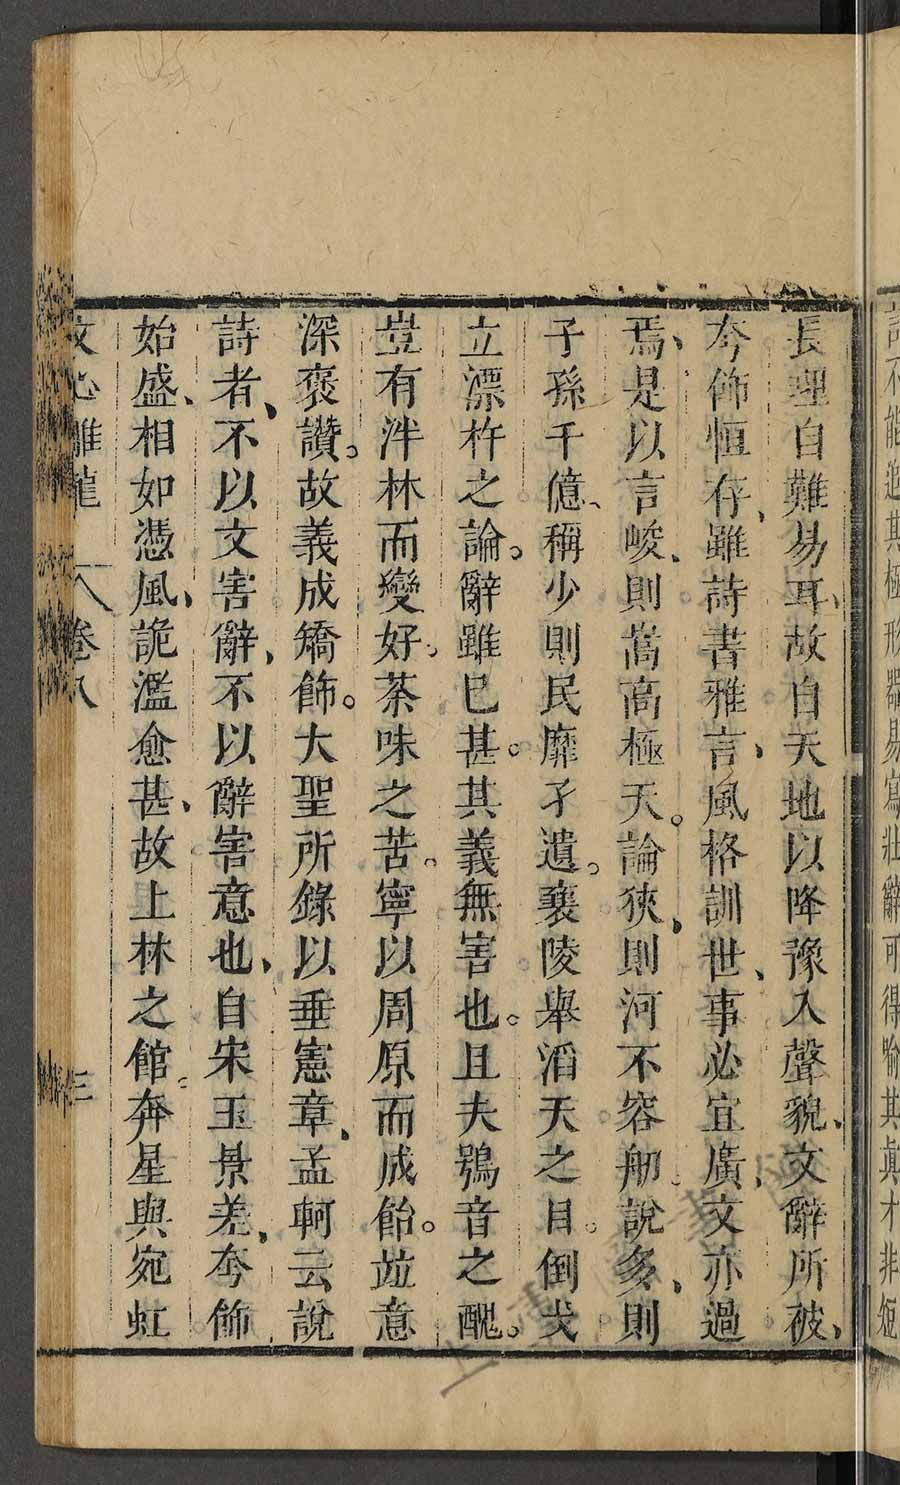 訶不能追其極形器易寫壯辭可得喻其眞才非短
長理自難易耳、故自天地以降豫入聲貌、文辭所被、
夸飾恒存、雖詩書雅言、風格訓世、事必宜廣、文亦過
焉、是以言峻、則嵩高極天。論狹、則河不容舠。說多、則
子孫千億、稱少則民靡孑遺。襄陵舉滔天之目。倒戈
立漂杵之論。辭雖已甚。其義無害也。且夫鴞音之醜。
豈有泮林而變好。荼味之苦。寧以周原而成飴。並意
深褒讚。故義成矯飾。大聖所錄以垂憲章、孟軻云說
詩者、不以文害辭、不以辭害意也、自宋玉景差、夸飾
始盛、相如憑風、詭濫愈甚、故上林之館。奔星與宛虹
文心雕龍 卷八 三